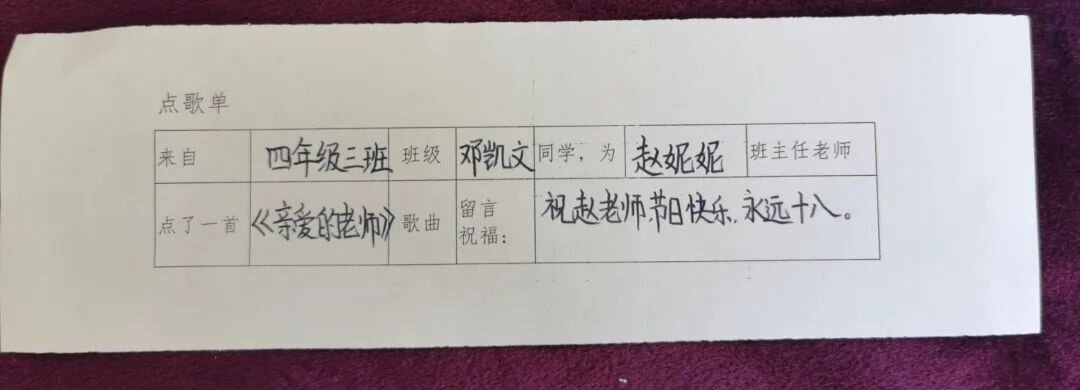 点歌单
来自 四年级三班 班级 邓凯文 同学，为 赵妮妮 班主任老师
点了一首 《亲爱的老师》 歌曲 留言祝福： 祝赵老师节日快乐，永远十八。